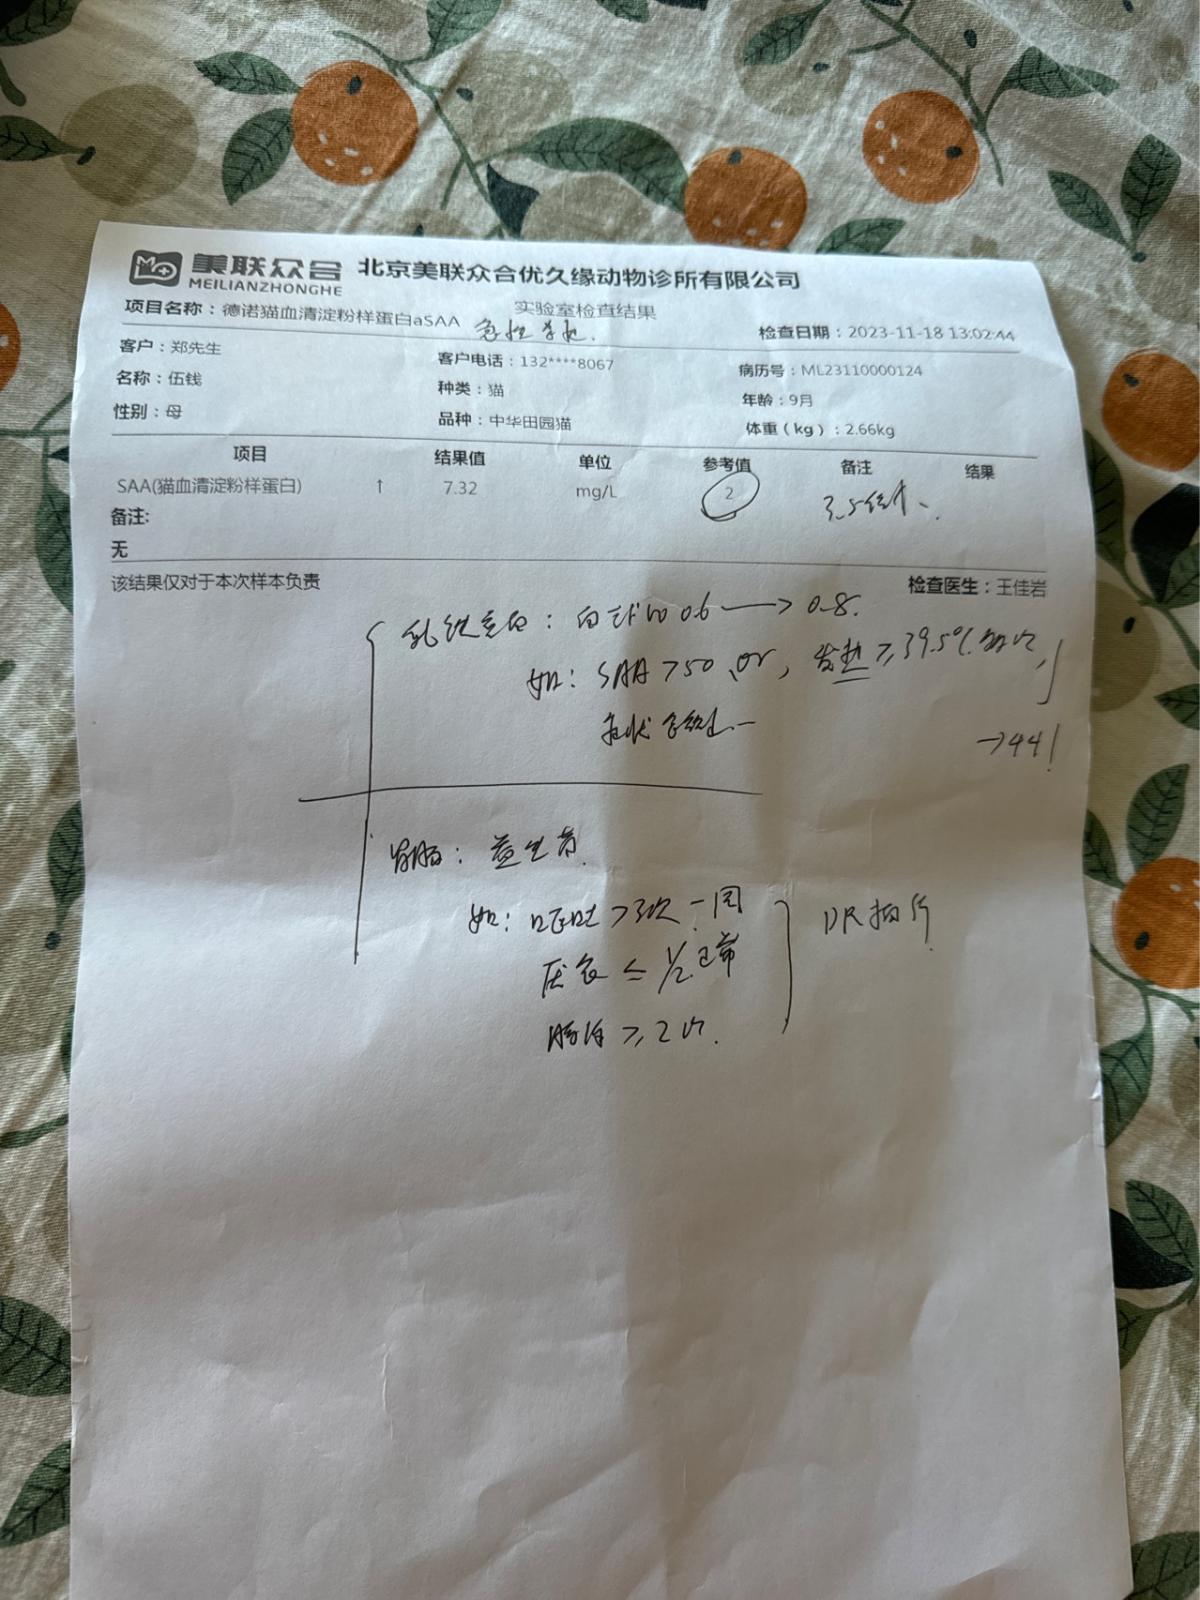 美联众合 北京美联众合优久缘动物诊所有限公司
MEILIANZHONGHE
实验室检查结果
项目名称：德诺猫血清淀粉样蛋白aSAA
检查日期：2023-11-18 13:02:44
客户：郑先生 客户电话：132****8067 病历号：ML23110000124
名称：伍钱 种类：猫 年龄：9月
性别：母 品种：中华田园猫 体重（kg）：2.66kg
项目 结果值 单位 参考值 备注 结果
SAA(猫血清淀粉样蛋白) ↑ 7.32 mg/L 2
备注:
无
该结果仅对于本次样本负责 检查医生：王佳岩
乳铁蛋白：白 0.6 → 0.8.
如：SAA >50, or, 发热 ≥39.5℃
症状
→44!
胃肠：益生菌.
如：呕吐 >3次 一周
厌食 ≤ 1/2 正常 DR拍片
≥2次.